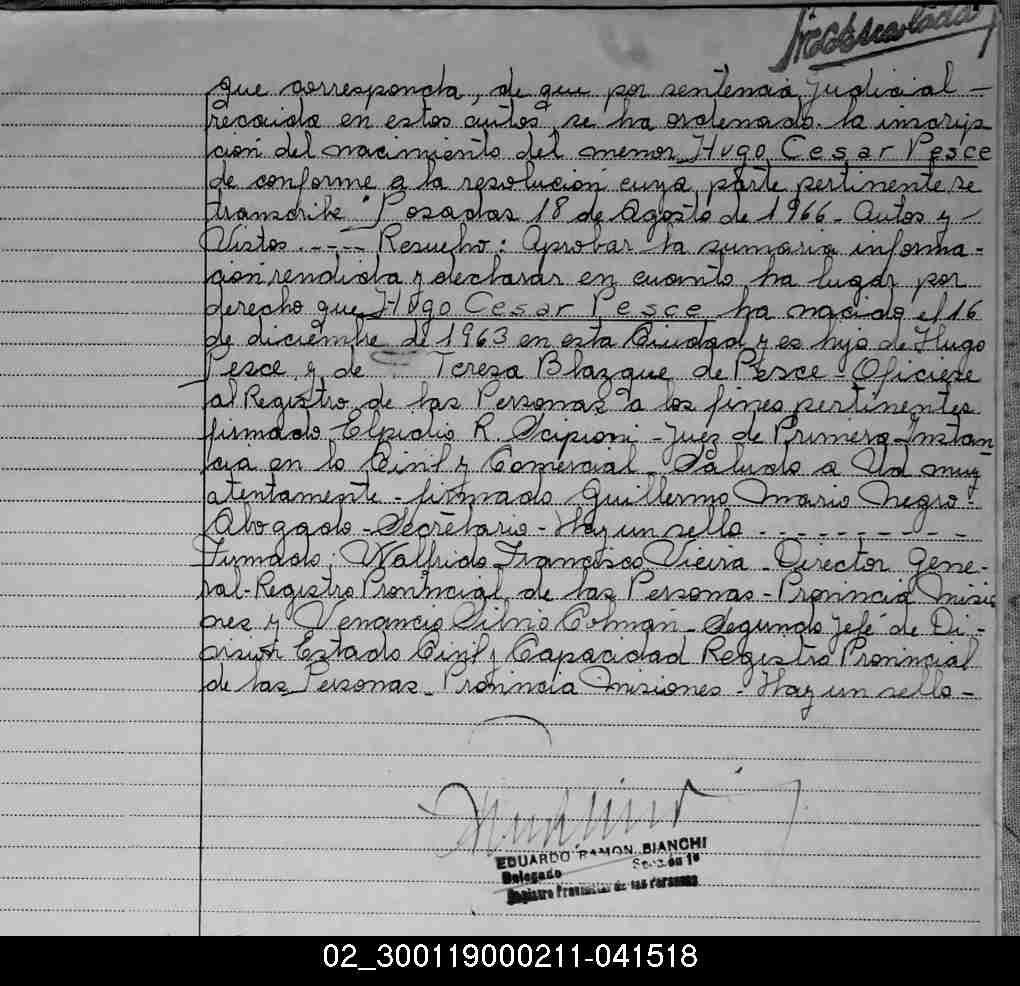 que corresponda, de que por sentencia judicial -
recaida en estos autos se ha ordenado la inscrip
cion del nacimiento del menor Hugo Cesar Pesce
de conforme a la resolucion cuya parte pertinente se
transcribe "Posadas 18 de Agosto de 1966 - Autos y -
Vistos .---- Resuelvo: Aprobar la sumaria informa-
cion rendida y declarar en cuanto ha lugar por
derecho que Hugo Cesar Pesce ha nacido el 16
de diciembre de 1963 en esta Ciudad y es hijo de Hugo
Pesce y de Teresa Blazque de Pesce - Oficiese
al Registro de las Personas a los fines pertinentes
firmado Elpidio R. Scipioni - Juez de Primera Instan
cia en lo Civil y Comercial - Saludo a Ud muy
atentamente - firmado Guillermo Mario Negro -
Abogado - Secretario - Hay un sello - - - - - - - - - -
Firmado: Walfrido Francisco Vieira - Director Gene-
ral - Registro Provincial de las Personas - Provincia Misio
nes y Venancio Silvio Colman - Segundo Jefe de Di-
vision Estado Civil y Capacidad Registro Provincial
de las Personas - Provincia Misiones - Hay un sello -
EDUARDO RAMON BIANCHI
Delegado Sección 1ª
Registro Provincial de las Personas
02_300119000211-041518